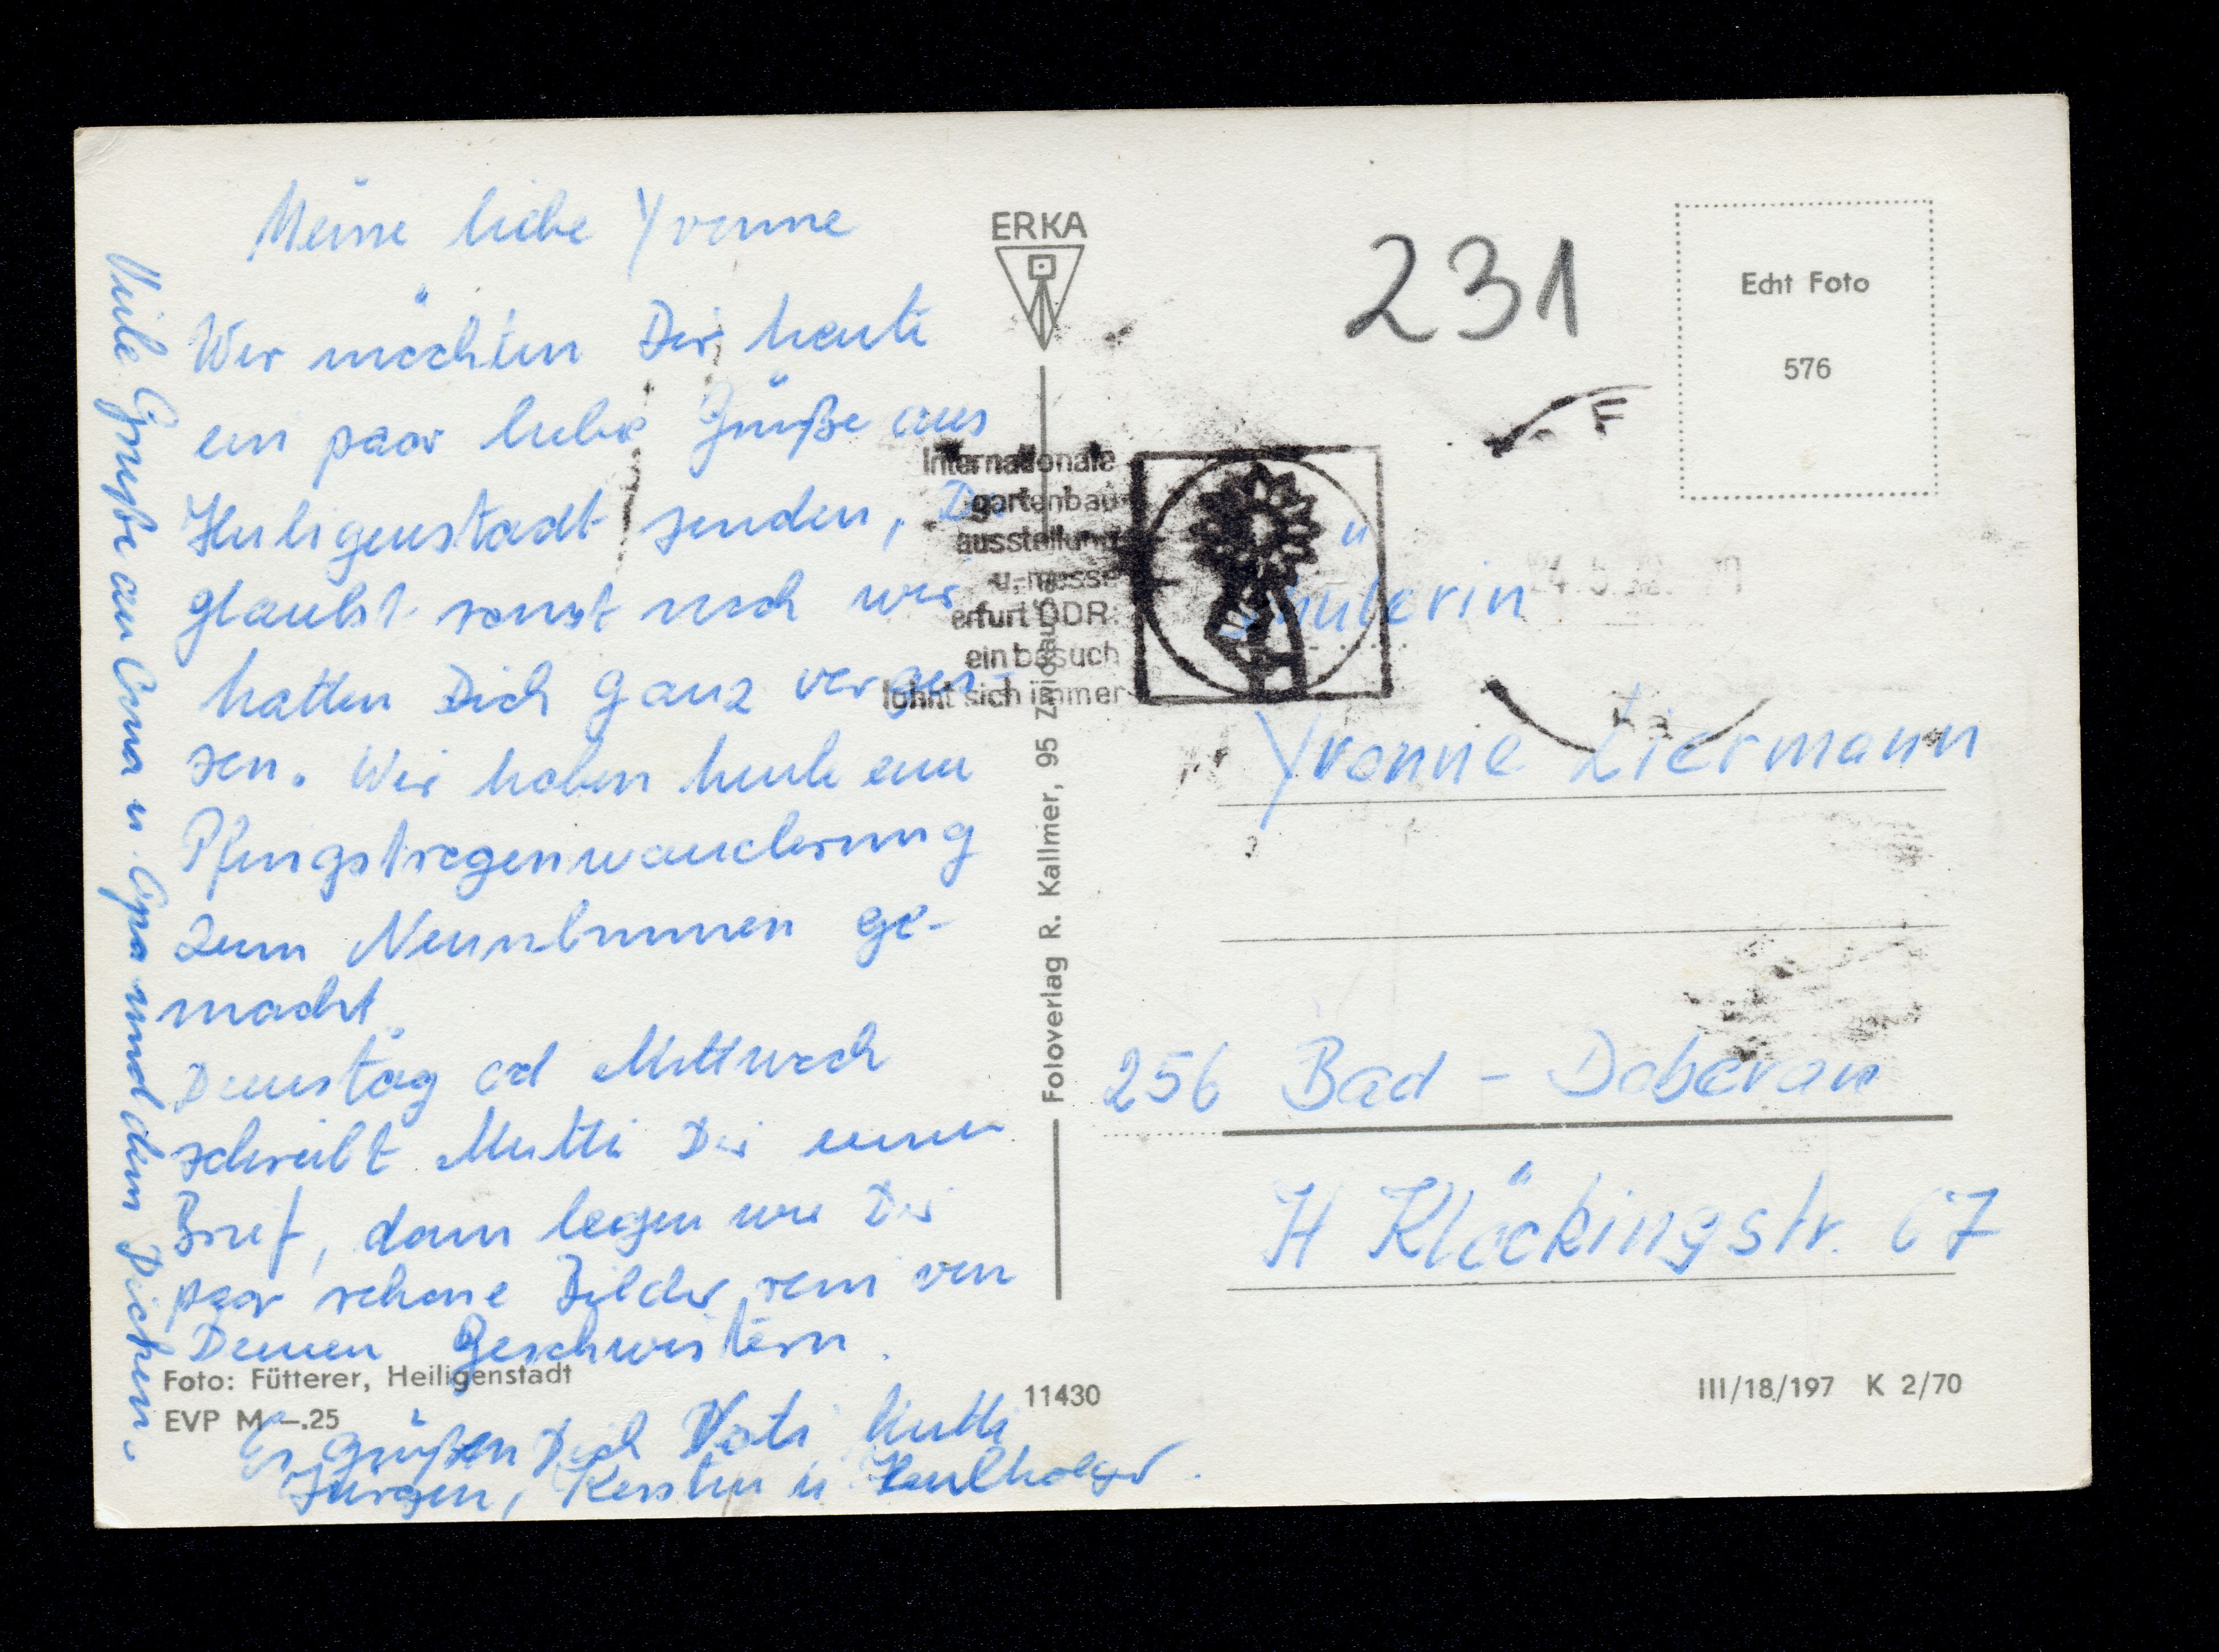 Meine liebe Yvonne
Wir möchten Dir heute
ein paar liebe Grüße aus
Heiligenstadt senden, Du
glaubst sonst noch wir
hätten Dich ganz verges-
sen. Wir haben heute eine
Pfingstregenwanderung
zum Neunbrunnen ge-
macht.
Dienstag od Mittwoch
schreibt Mutti Dir einen
Brief, dann legen wir Dir
paar schöne Bilder rein von
Deinen Geschwistern.
Es grüßen Dich Vati Mutti
Jürgen, Kerstin u.
Viele Grüße an Oma u. Opa und dem
Foto: Fütterer, Heiligenstadt
EVP M —.25
ERKA
Fotoverlag R. Kallmer, 95 Zwickau
11430
internationale
gartenbau-
ausstellung
u. messe
erfurt DDR.
ein besuch
lohnt sich immer
231
Echt Foto
576
Schülerin
Yvonne Liermann
256 Bad - Doberan
H Klöckingstr. 67
III/18/197 K 2/70